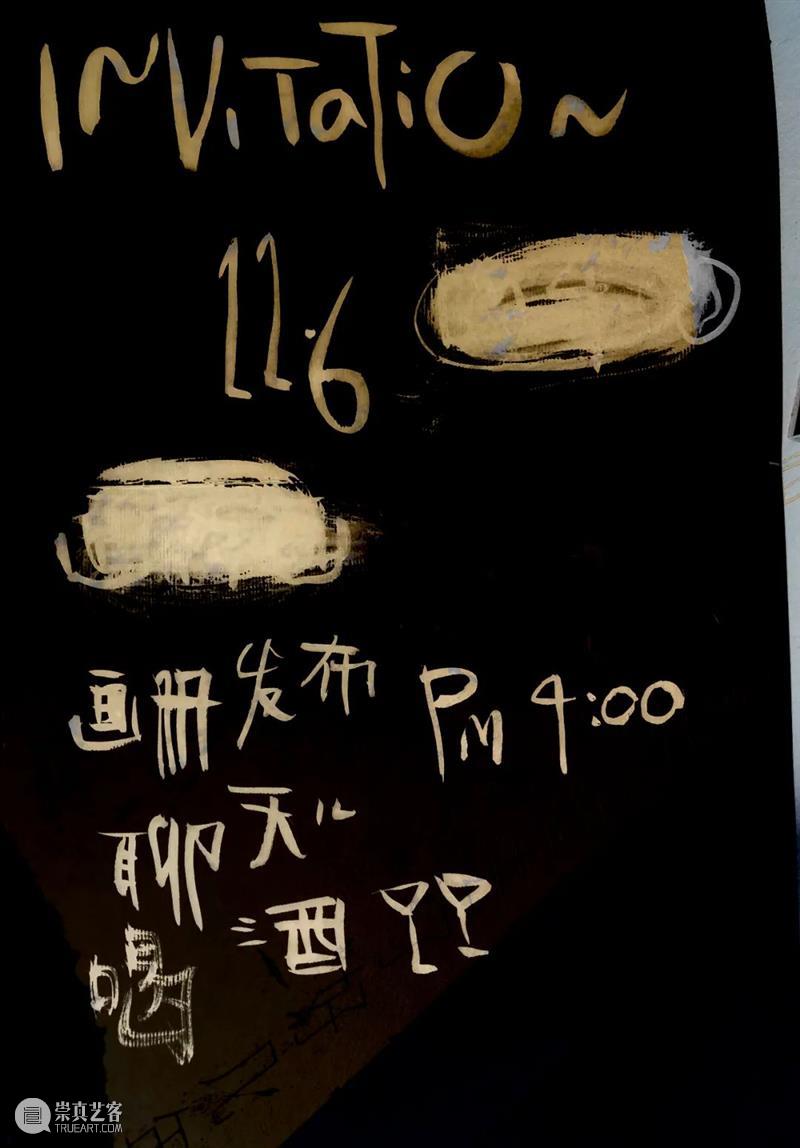 INViTaTiON
11.6
画册发布 PM 4:00
聊天儿
喝酒
崇真艺客
TRUEART.COM